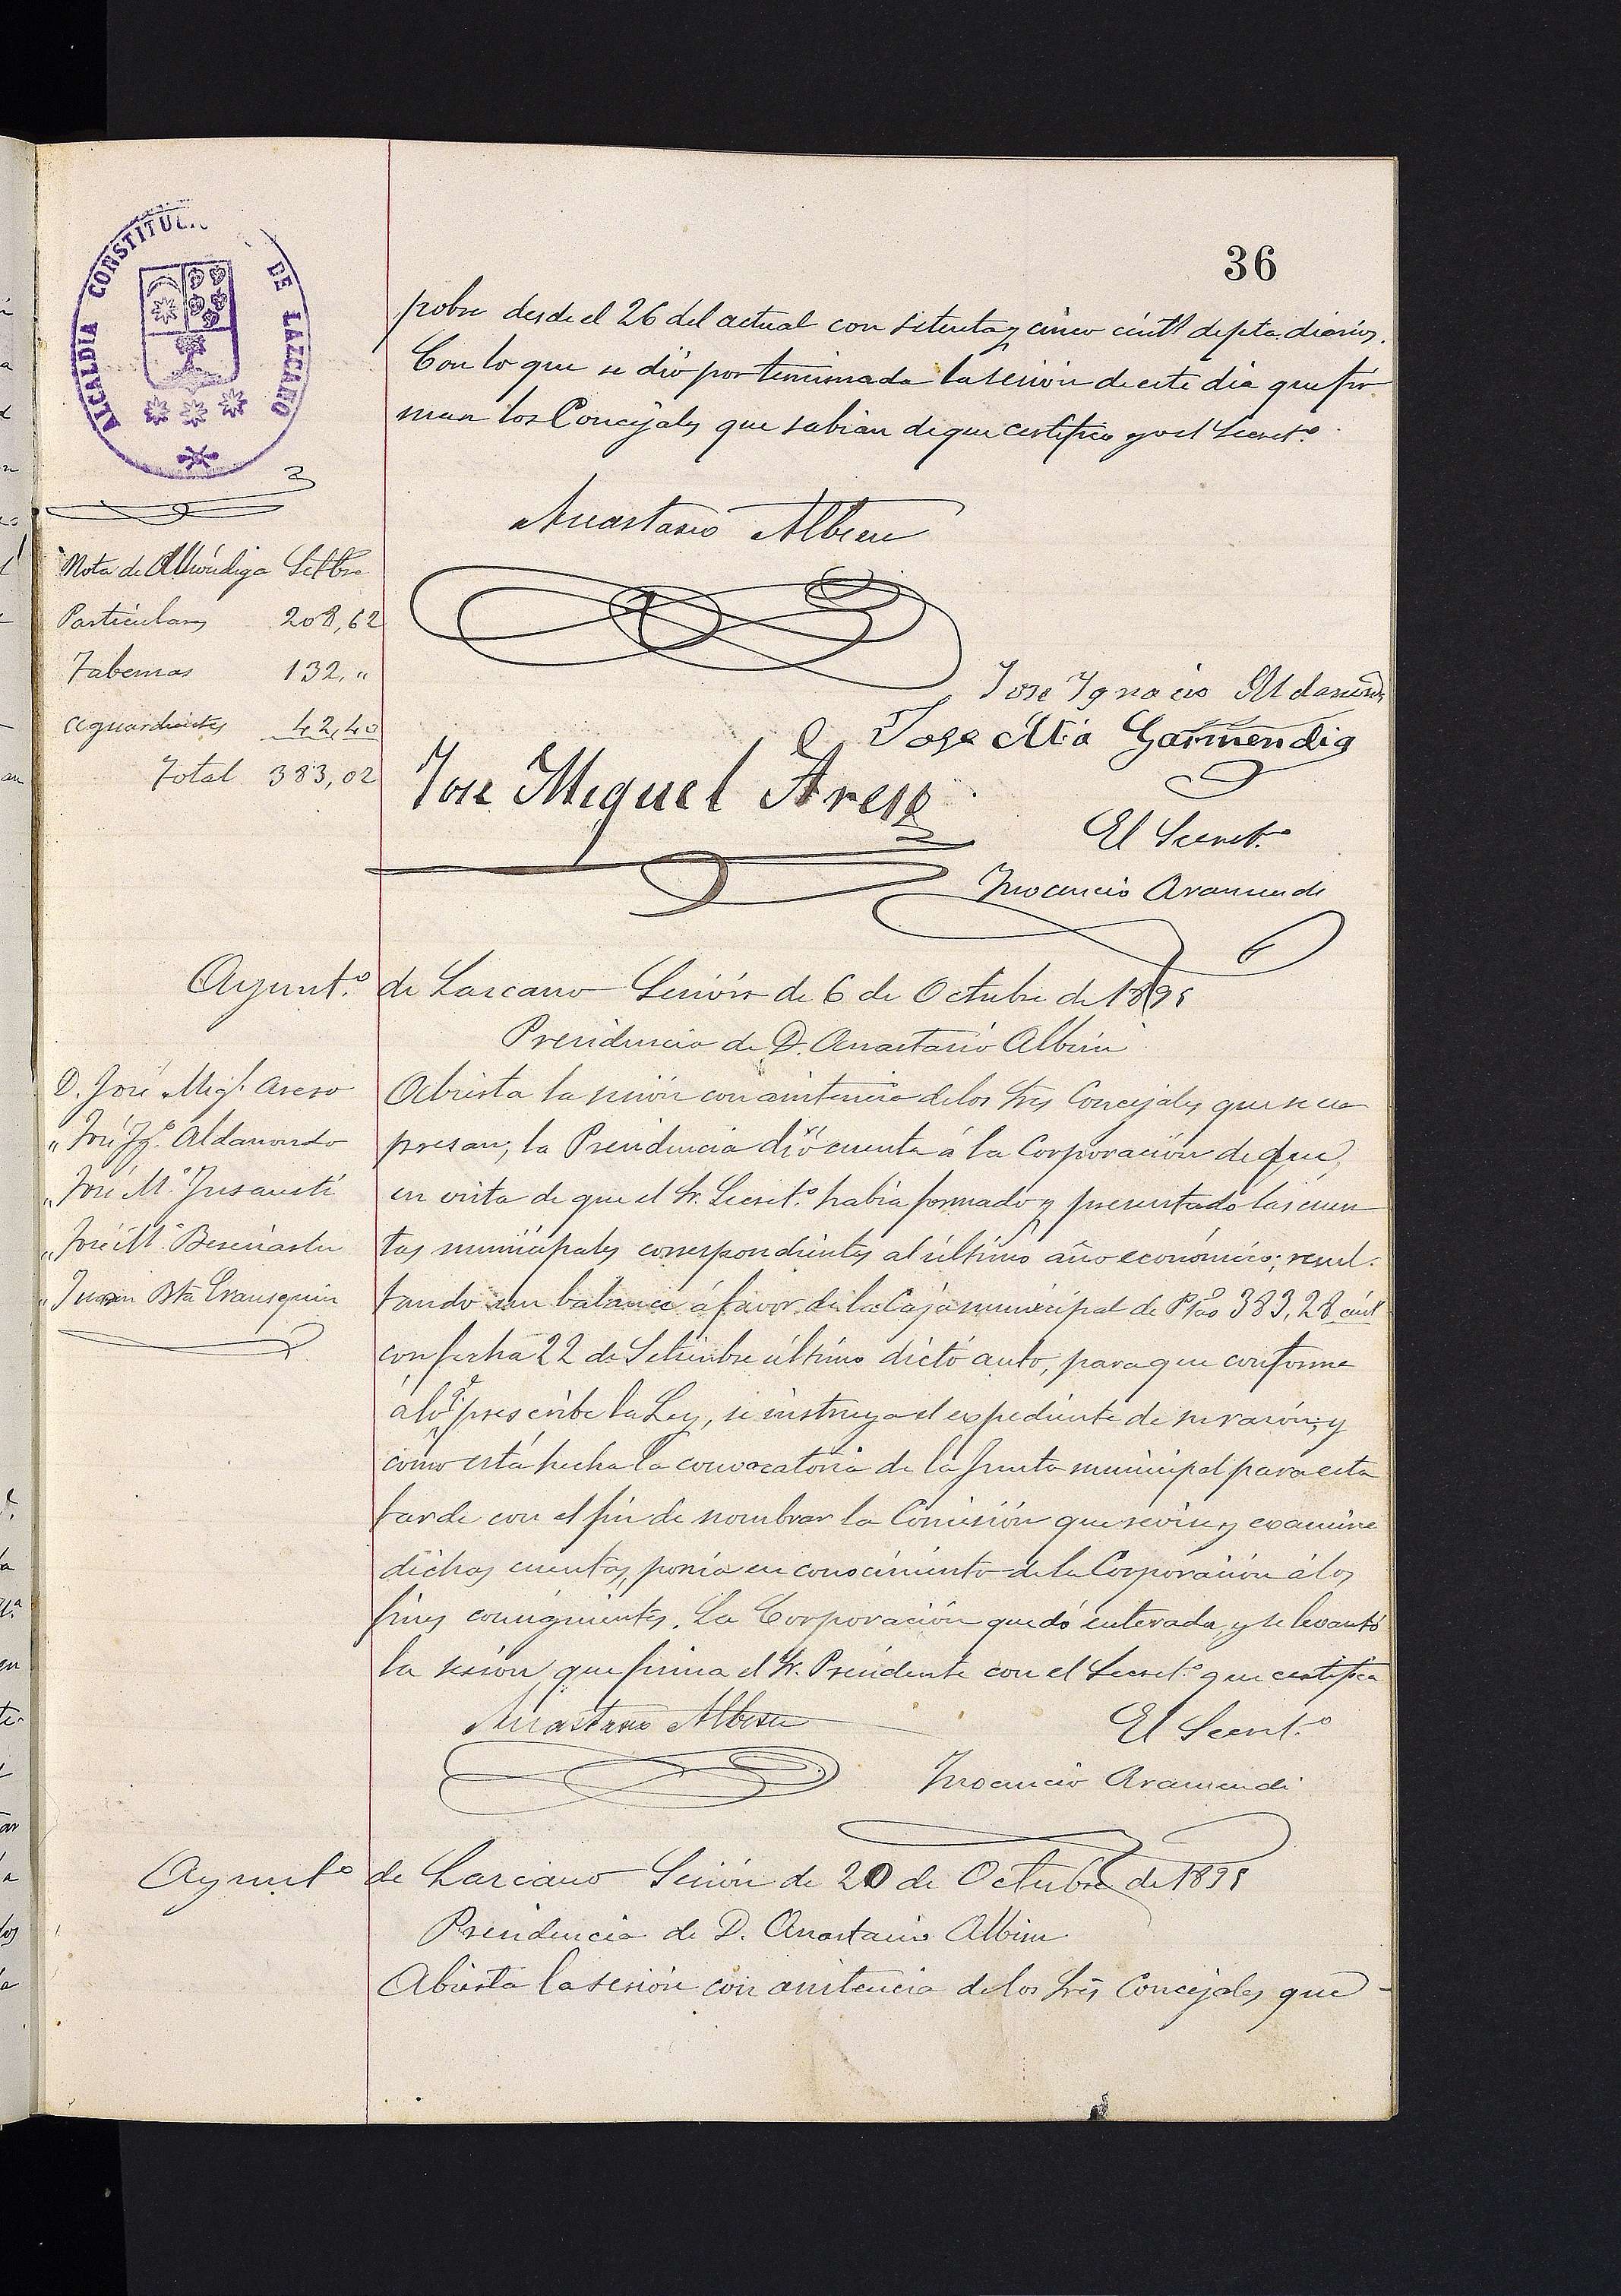 36
ALCALDIA CONSTITUC. DE LAZCANO
pobre desde el 26 del actual con setenta y cinco cént.s de pta. diarios.
Con lo que se dió por terminada la sesión de este dia que fir
man los Concejales que sabian de que certifico yo el Secret.o
Anastasio Albisu
Nota de Alhóndiga Setbre
Particulares 208,62
Tabernas 132, "
Aguardientes 42,40
Total 383,02
José Ignacio Aldanondo
Jose Mía Garmendia
Jose Miguel Areso
El Secret.o
Inocencio Aramendi
Ayunt.o de Lazcano Sesión de 6 de Octubre de 1895
Presidencia de D. Anastasio Albisu
D. José Mig.l Areso
" José Ig.o Aldanondo
" José M.a Insausti
" José M.a
" Juan Bta Erausquin
Abierta la sesión con asistencia de los Sres Concejales que se ex
presan; la Presidencia dió cuenta á la Corporación de que,
en vista de que el Sr. Secret.o habia formado y presentado las cuen
tas municipales correspondientes al último año económico; resul-
tando un balance á favor de la Caja municipal de Ptas 383,28 cént
con fecha 22 de Setiembre último dictó auto, para que conforme
á lo q.e prescribe la Ley, se instruya el expediente de su razón; y
como está hecha la convocatoria de la Junta municipal para esta
tarde con el fin de nombrar la Comisión que revise y examine
dichas cuentas, ponia en conocimiento de la Corporación á los
fines consiguientes. La Corporación quedó enterada, y se levantó
la sesion, que firma el Sr. Presidente con el Secret.o que certifica
Anastasio Albisu
El Secret.o
Inocencio Aramendi
Ayunt.o de Lazcano Sesión de 20 de Octubre de 1895
Presidencia de D. Anastasio Albisu
Abierta la sesión con asistencia de los Sres Concejales que